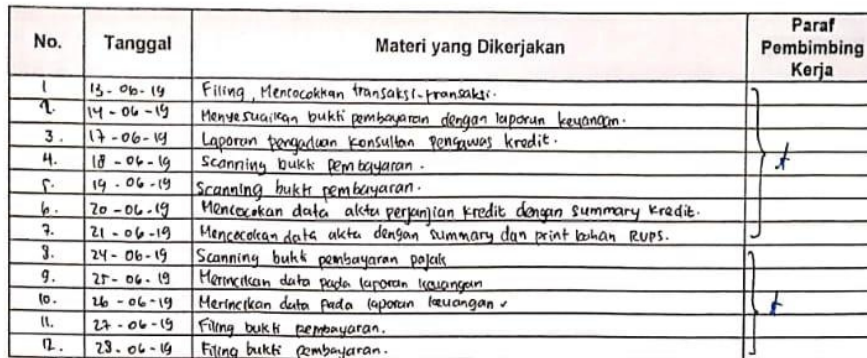 No. Tanggal Materi yang Dikerjakan Paraf Pembimbing Kerja
1 13-06-19 Filing, Mencocokkan transaksi-transaksi.
2. 14-06-19 Menyesuaikan bukti pembayaran dengan laporan keuangan.
3. 17-06-19 Laporan pengaduan konsultan pengawas kredit.
4. 18-06-19 Scanning bukti pembayaran.
5. 19-06-19 Scanning bukti pembayaran.
6. 20-06-19 Mencocokan data akta perjanjian kredit dengan summary kredit.
7. 21-06-19 Mencocokan data akta dengan summary dan print bahan RUPS.
8. 24-06-19 Scanning bukti pembayaran pajak
9. 25-06-19 Merincikan data pada laporan keuangan
10. 26-06-19 Merincikan data pada laporan keuangan.
11. 27-06-19 Filing bukti pembayaran.
12. 28-06-19 Filing bukti pembayaran.